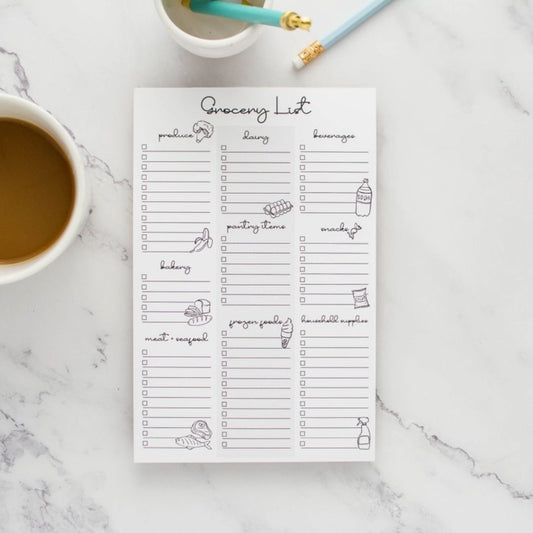 Grocery List
produce
dairy
beverages
SODA
pantry items
snacks
bakery
frozen foods
household supplies
meat + seafood